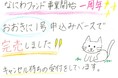 なにわファンド事業開始 一周年
おおきに1号 申込みベースで
完売しました!!
キャンセル待ちの受付をしています。